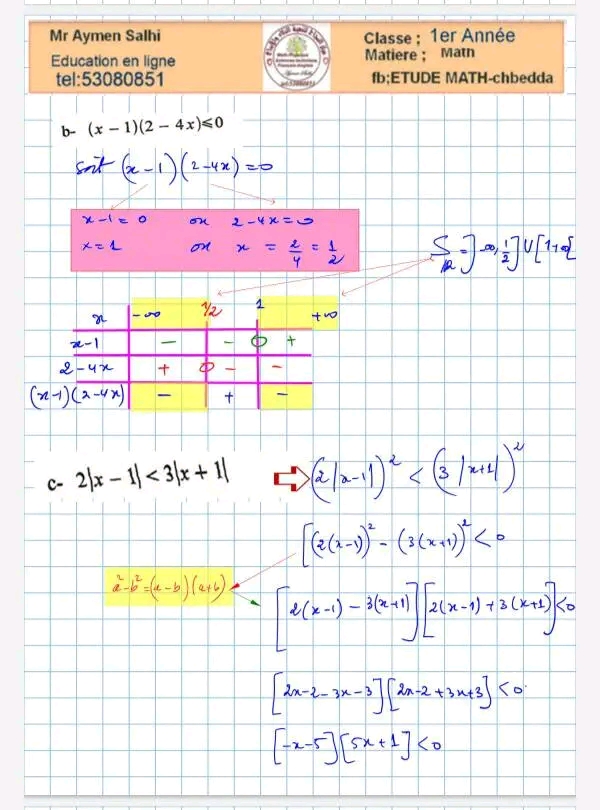 Mr Aymen Salhi
Education en ligne
tel:53080851
Classe ; 1er Année
Matiere ; Math
fb;ETUDE MATH-chbedda
b- (x − 1)(2 − 4x)⩽0
soit (x-1)(2-4x)=0
x-1=0 ou 2-4x=0
x=1 ou x = 2/4 = 1/2
S_IR=]-∞,1/2]U[1+∞[
x -∞ 1/2 1 +∞
x-1 - - 0 +
2-4x + 0 - -
(x-1)(2-4x) - + -
c- 2|x − 1| < 3|x + 1| ⇨ (2|x-1|)² < (3|x+1|)²
[(2(x-1))² - (3(x+1))² < 0
a²-b²=(a-b)(a+b)
[2(x-1) - 3(x+1)][2(x-1)+3(x+1)]<0
[2x-2-3x-3][2x-2+3x+3]<0
[-x-5][5x+1]<0